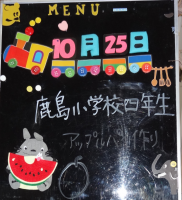 MENU
10月25日
鹿島小学校四年生
アップルパイ作り